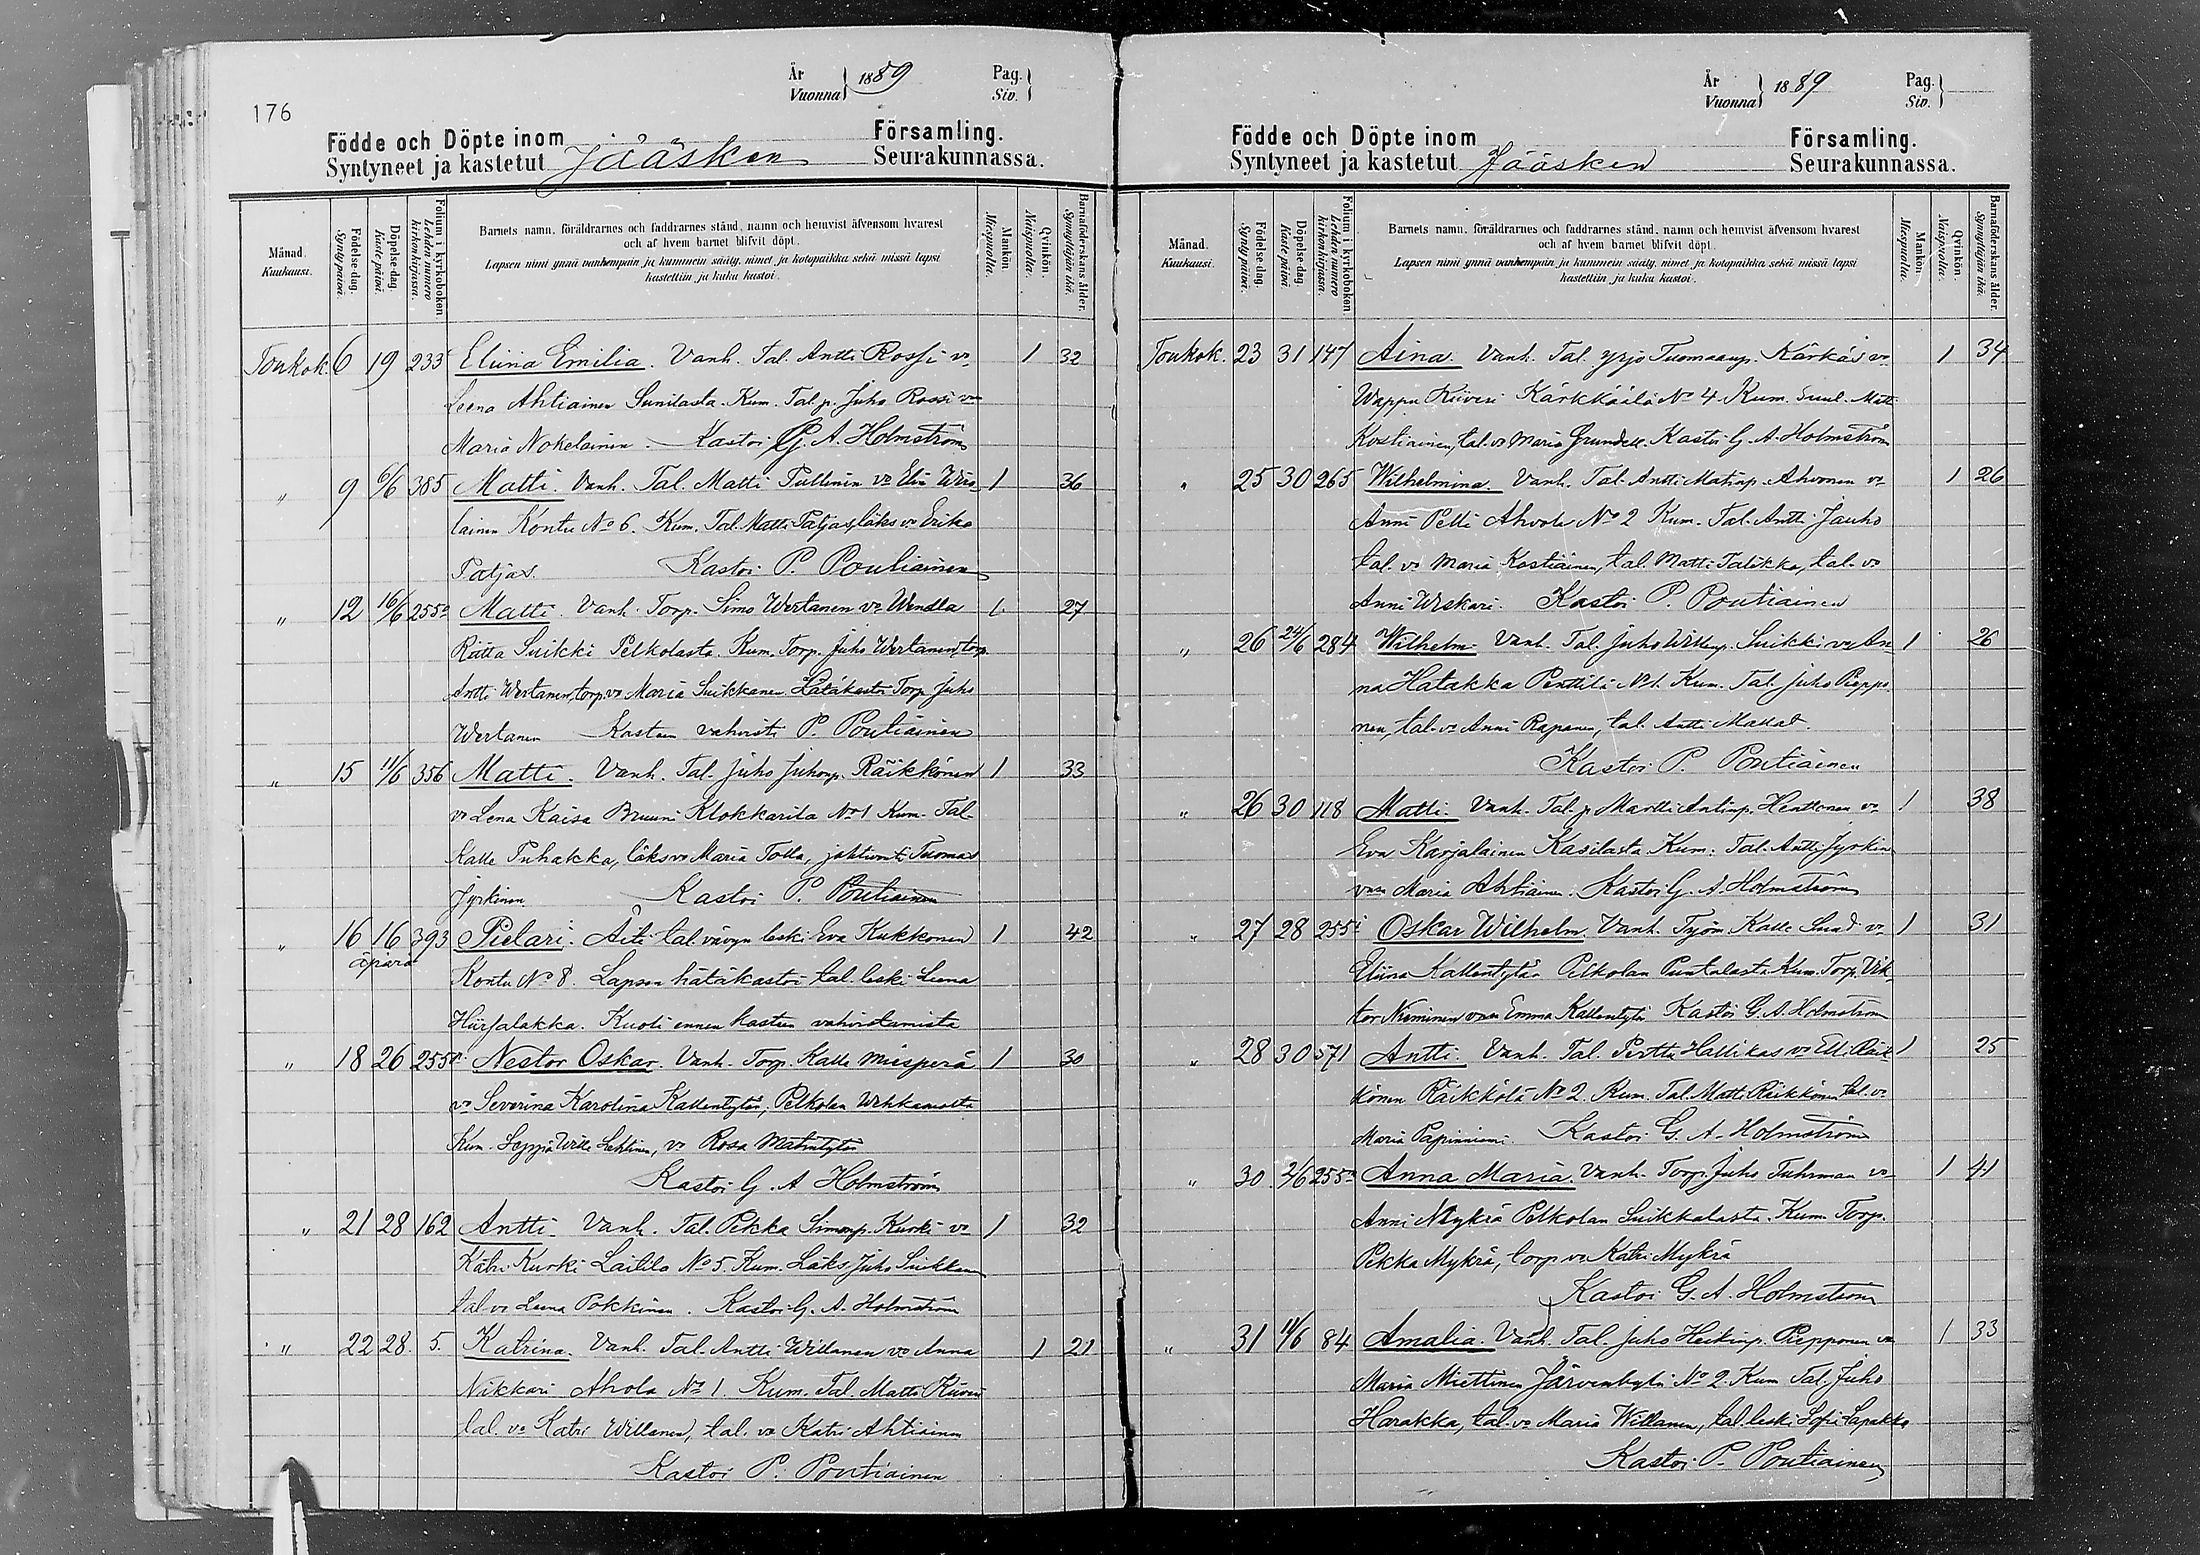 176
År
Vuonna } 1889 Pag.
Siv. }
Födde och Döpte inom
Syntyneet ja kastetut Jääsken Församling.
Seurakunnassa.
Månad.
Kuukausi.
Födelse-dag.
Synty päivä.
Döpelse-dag.
Kaste päivä.
Folium i kyrkoboken.
Lehden numero kirkonkirjassa.
Barnets namn, föräldrarnes och faddrarnes stånd, namn och hemvist äfvensom hvarest
och af hvem barnet blifvit döpt.
Lapsen nimi ynnä vanhempain ja kummein sääty, nimet ja kotopaikka sekä missä lapsi
kastettiin ja kuka kastoi.
Mankön.
Miespuolta.
Qvinkön.
Naispuolta.
Barnaföderskans ålder.
Synnyttäjän ikä.
Toukok. 6 19 233 Eliina Emilia. Vanh. Tal. Antti Rossi vo 1 32
Leena Ahtiainen Sunilasta. Kum. Tal. p. Juho Rossi
Maria Nokelainen. Kastoi G. A. Holmström
" 9 6/6 385 Matti. Vanh. Tal. Matti Pullinen vo 1 36
lainen Kontu No 6. Kum. Tal. Matti Patjas, läks vo Erika
Patjas. Kastoi P. Poutiainen
" 12 16/6 255 Matti. Vanh. Torp. Simo Wertanen vo Wendla 1 27
Rätta Suikki Pelkolasta. Kum. Torp. Juho Wertanen, torp.
Antti Wertanen, torp. vo Maria Suikkanen. Hätäkastoi Torp. Juho
Wertanen Kasteen vahvisti P. Poutiainen
" 15 11/6 356 Matti. Vanh. Tal. Juho Juhonp. Räikkönen 1 33
vo Lena Kaisa Bruuni Klokkarila No 1 Kum. Tal.
Kalle Puhakka, läks vo Maria Tolla, jahtivouti Tuomas
Jyrkinen Kastoi P. Poutiainen
" 16 16 393 Pietari. Äiti tal. vävyn leski Eva Kukkonen 1 42
äpärä
Kontu No 8. Lapsen hätäkastoi tal. leski Leena
Hiirsalakka. Kuoli ennen kasteen vahvistamista
" 18 26 255 Nestor Oskar. Vanh. Torp. Kalle Miesperä 1 30
vo Severina Karolina Kallentytär, Pelkolan
Kum. Seppä Wille Lehtinen, vo Rosa Matintytär
Kastoi G. A Holmström
" 21 28 162 Antti. Vanh. Tal. Pekka Simonp. Kurki vo 1 32
Katri Kurki Laitila No 5. Kum. Läks Juho Suikkanen
tal vo Leena Pokkinen. Kastoi G. A. Holmström
" 22 28. 5. Katrina. Vanh. Tal. Antti Willanen vo Anna 1 21
Nikkari Ahola No 1. Kum. Tal. Matti Kiiveri
tal. vo Katri Willanen, tal. vo Katri Ahtiainen
Kastoi P. Poutiainen
År
Vuonna } 1889 Pag.
Siv. }
Födde och Döpte inom
Syntyneet ja kastetut Jääsken Församling.
Seurakunnassa.
Månad.
Kuukausi.
Födelse-dag.
Synty päivä.
Döpelse-dag.
Kaste päivä.
Folium i kyrkoboken.
Lehden numero kirkonkirjassa.
Barnets namn, föräldrarnes och faddrarnes stånd, namn och hemvist äfvensom hvarest
och af hvem barnet blifvit döpt.
Lapsen nimi ynnä vanhempain ja kummein sääty, nimet ja kotopaikka sekä missä lapsi
kastettiin ja kuka kastoi.
Mankön.
Miespuolta.
Qvinkön.
Naispuolta.
Barnaföderskans ålder.
Synnyttäjän ikä.
Toukok. 23 31 147 Aina. Vanh. Tal. Yrjö Tuomaanp. Kärkäs vo 1 34
Wappu Kiiveri Kärkkäälä No 4. Kum. Suul. Matti
Kostiainen, tal. vo Maria Grundell. Kastoi G. A. Holmström
" 25 30 265 Wilhelmina. Vanh. Tal. Antti Matinp. Ahvonen vo 1 26
Anni Pelli Ahvola No 2 Kum. Tal. Antti Jauho
tal. vo Maria Kostiainen, tal. Matti Talikka, tal. vo
Anni Uskari. Kastoi P. Poutiainen
" 26 24/6 284 Wilhelm. Vanh. Tal. Juho Willenp. Suikki vo An- 1 26
na Hatakka Penttilä No 1. Kum. Tal. Juho Piepponen
nen, tal. vo Anni Rapanen, tal. Antti
Kastoi P. Poutiainen
" 26 30 118 Matti. Vanh. Tal. p. Martti Antinp. Henttonen vo 1 38
Eva Karjalainen Kasilasta. Kum. Tal. Antti Jyrkinen
Maria Ahtiainen. Kastoi G. A. Holmström
" 27 28 255 Oskar Wilhelm. Vanh. Työm. Kalle vo 1 31
Eliina Kallentytär Pelkolan Kum. Torp. Vik-
tor Nieminen Emma Kallentytär Kastoi G. A. Holmström
" 28 30 571 Antti. Vanh. Tal. Pertti Hallikas vo Elli Räik- 1 25
könen Räikkölä No 2. Kum. Tal. Matti Räikkönen, tal. vo
Maria Papinniemi. Kastoi G. A. Holmström
" 30 2/6 255 Anna Maria. Vanh. Torp. Juho Tuhrman vo 1 41
Anni Mykrä Pelkolan Suikkalasta. Kum. Torp.
Pekka Mykrä, torp. vo Katri Mykrä
Kastoi G. A. Holmström
" 31 11/6 84 Amalia. Vanh. Tal. Juho Heikinp. Piepponen vo 1 33
Maria Miettinen Järvenkylä No 2. Kum. Tal. Juho
Harakka, tal. vo Maria Willanen, tal. leski Sofia Lapakko
Kastoi P. Poutiainen